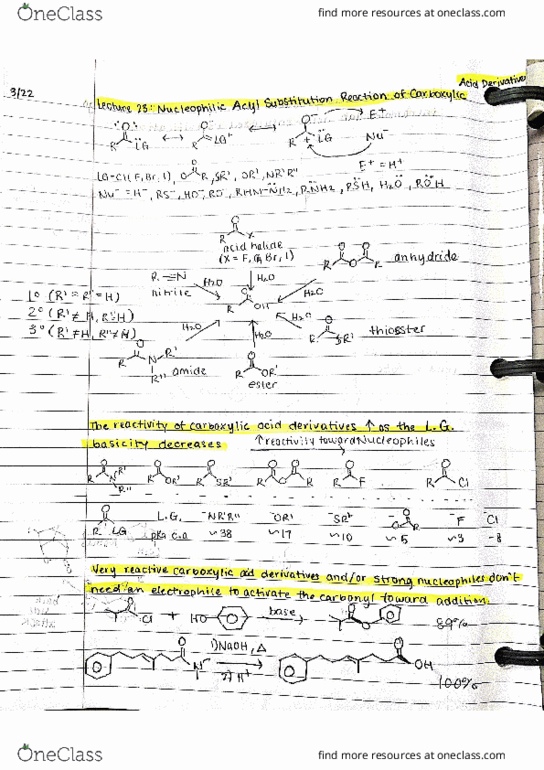 OneClass
find more resources at oneclass.com
3/22
Lecture 23: Nucleophilic Acyl Substitution Reaction of Carboxylic
Acid Derivatives
R LG ↔ R LG⁺ ↔ R LG E⁺
Nu⁻
E⁺ = H⁺
LG = Cl(F, Br, I), O R, SR', OR', NR'R"
Nu⁻ = H⁻, RS⁻, HO⁻, RO⁻, RNH₂, RSH, H₂O, ROH
O
R X
acid halide
(X = F, Cl, Br, I)
R O R anhydride
R ≡N
nitrile
H₂O
H₂O
H₂O
R OH
1° (R' = R" = H)
2° (R' ≠ H, R"=H)
3° (R' ≠ H, R" ≠ H)
H₂O
H₂O
H₂O
R SR' thioester
R N R'
R" amide
R OR'
ester
The reactivity of carboxylic acid derivatives ↑ as the L.G.
basicity decreases
↑reactivity toward Nucleophiles
R N R' R" R OR' R SR' R O R R F R Cl
R LG
L.G. ⁻NR'R" ⁻OR' ⁻SR' ⁻O R ⁻F ⁻Cl
pKa c.a ~38 ~17 ~10 ~5 ~3 -8
Very reactive carboxylic acid derivatives and/or strong nucleophiles don't
need an electrophile to activate the carbonyl toward addition.
Cl + HO base O 89%
N 1) NaOH, Δ
2) H⁺
OH
100%
OneClass
find more resources at oneclass.com